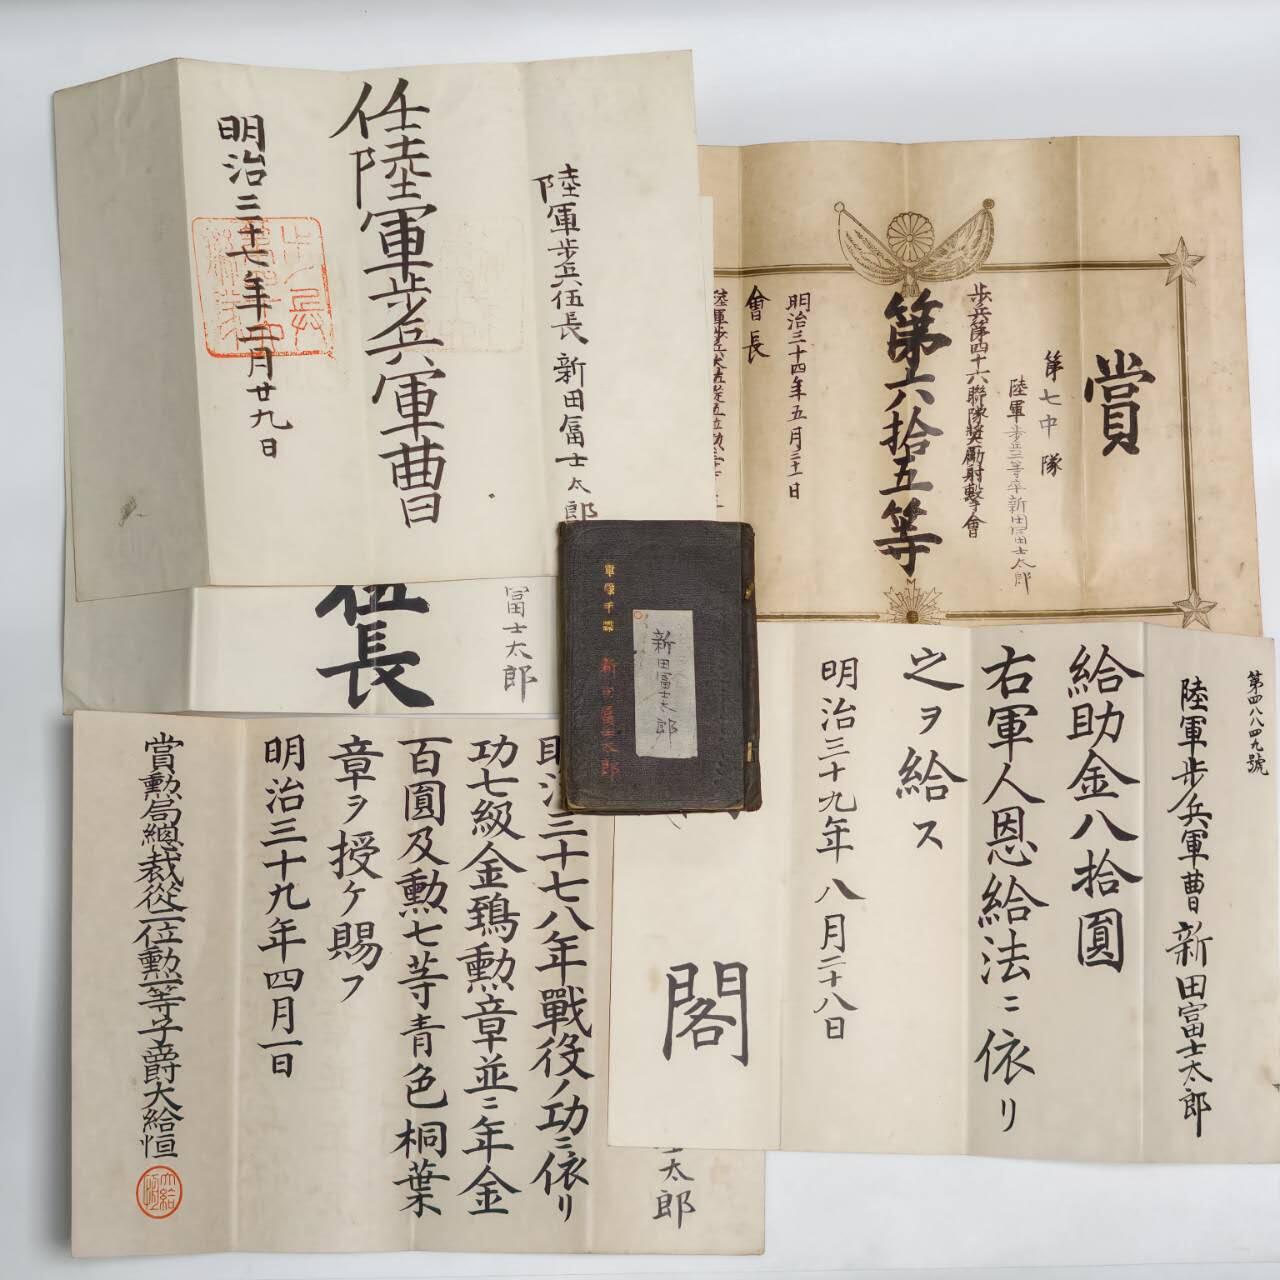 陸軍歩兵伍長 新田冨士太郎
任陸軍歩兵軍曹
明治三十七年二月廿九日
賞
第七中隊
陸軍歩兵二等卒新田冨士太郎
歩兵第四十六聯隊奬勵射擊會
第六拾五等
明治三十四年五月三十一日
會長
冨士太郎
伍長
軍隊手牒
新田冨士太郎
新田冨士太郎
第四八八四九號
陸軍歩兵軍曹新田富士太郎
給助金八拾圓
右軍人恩給法ニ依リ
之ヲ給ス
明治三十九年八月二十八日
閣
太郎
明治三十七八年戰役ノ功ニ依リ
功七級金鵄勲章並ニ年金
百圓及勲七等青色桐葉
章ヲ授ケ賜フ
明治三十九年四月一日
賞勲局總裁從二位勲一等子爵大給恒